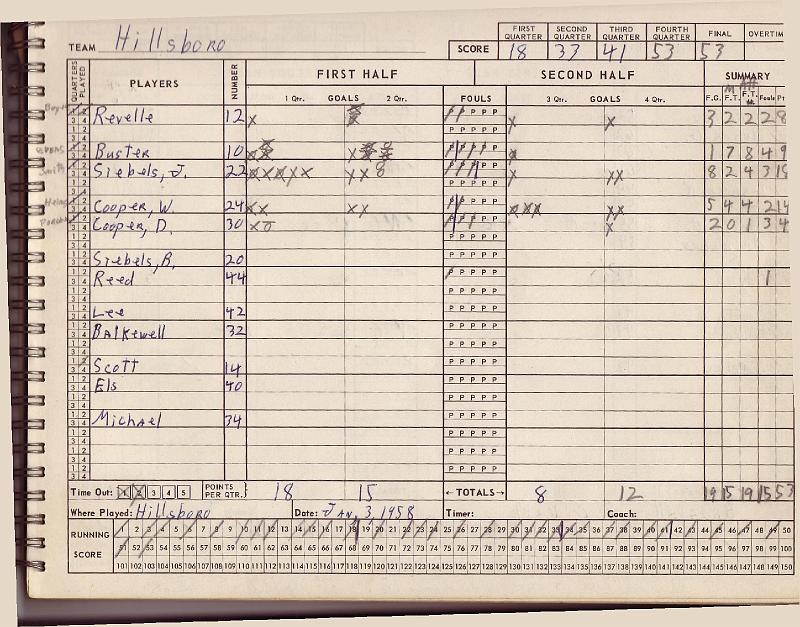 TEAM Hillsboro
SCORE
FIRST QUARTER SECOND QUARTER THIRD QUARTER FOURTH QUARTER FINAL OVERTIM
18 33 41 53 53
QUARTERS PLAYED PLAYERS NUMBER FIRST HALF SECOND HALF SUMMARY
1 Qtr. GOALS 2 Qtr. FOULS 3 Qtr. GOALS 4 Qtr. F.G. F.T. F.T. Fouls Pt
Revelle 12 3 2 2 2 8
Buster 10 1 7 8 4 9
Siebels, J. 22 8 2 4 3 18
Cooper, W. 24 5 4 4 2 14
Cooper, D. 30 2 0 1 3 4
Siebels, B. 20
Reed 44 1
Lee 42
Balkewell 32
Scott 14
Els 40
Michael 34
Time Out: 1 2 3 4 5 POINTS PER QTR. 18 15 ←TOTALS→ 8 12 19 15 19 15 53
Where Played: Hillsboro Date: Jan, 3, 1958 Timer: Coach:
RUNNING SCORE
1 2 3 4 5 6 7 8 9 10 11 12 13 14 15 16 17 18 19 20 21 22 23 24 25 26 27 28 29 30 31 32 33 34 35 36 37 38 39 40 41 42 43 44 45 46 47 48 49 50
51 52 53 54 55 56 57 58 59 60 61 62 63 64 65 66 67 68 69 70 71 72 73 74 75 76 77 78 79 80 81 82 83 84 85 86 87 88 89 90 91 92 93 94 95 96 97 98 99 100
101 102 103 104 105 106 107 108 109 110 111 112 113 114 115 116 117 118 119 120 121 122 123 124 125 126 127 128 129 130 131 132 133 134 135 136 137 138 139 140 141 142 143 144 145 146 147 148 149 150